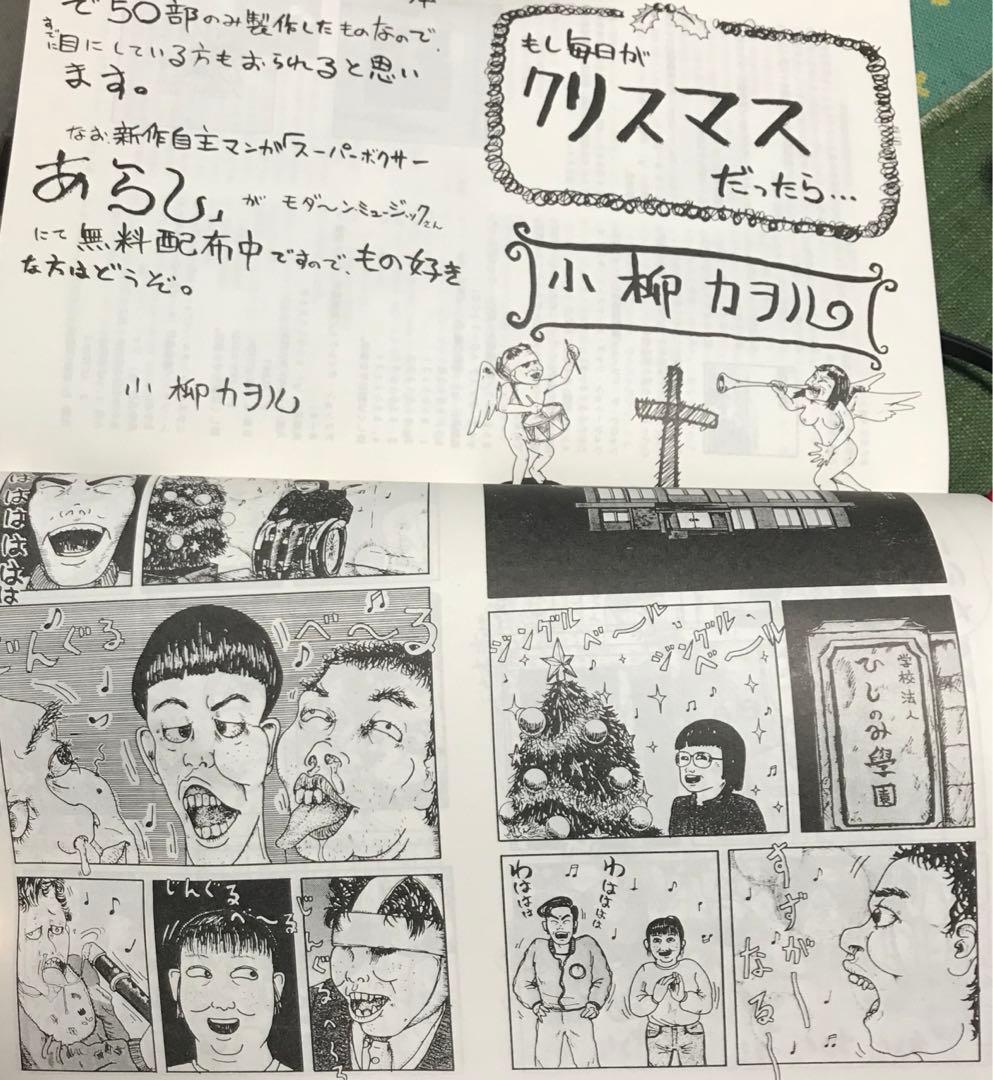 で50部のみ製作したものなので、
すでに目にしている方もおられると思い
ます。
なお、新作自主マンガ「スーパーボクサー
あらし」が モダ〜ンミュージックさん
にて 無料配布中ですので、もの好き
な方はどうぞ。
小柳カヲル
もし毎日が
クリスマス
だったら…
小柳カヲル
学校法人
ひじのみ學園
ジングル
ベ〜ル
ジングル
ベ〜ル
すずが〜
なる〜
わはははは
わはははは
はははははは
じんぐる
べ〜る
じんぐる
べ〜る
じんぐる
べ〜る